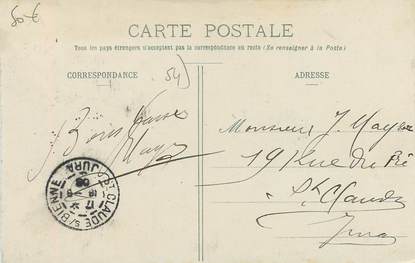 50 €
CARTE POSTALE
Tous les pays étrangers n'acceptent pas la correspondance au recto (Se renseigner à la Poste)
CORRESPONDANCE
ADRESSE
Bons
Monsieur J. Mayer
19 Rue du Pré
St Claude
Jura
ST-CLAUDE S/ BIENNE
JURA
17
09